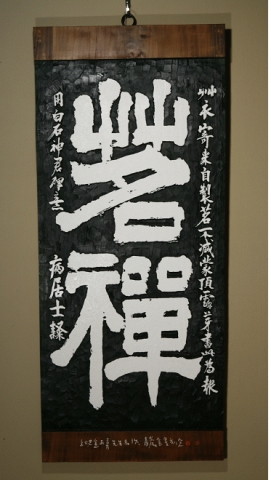 茗禪
艸衣寄來自製茗不減蒙頂露芽書此為報
用白石神君碑意
病居士隸